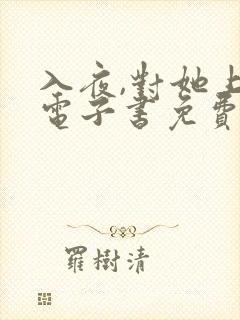 入夜,對她上
電子書免費
羅樹清